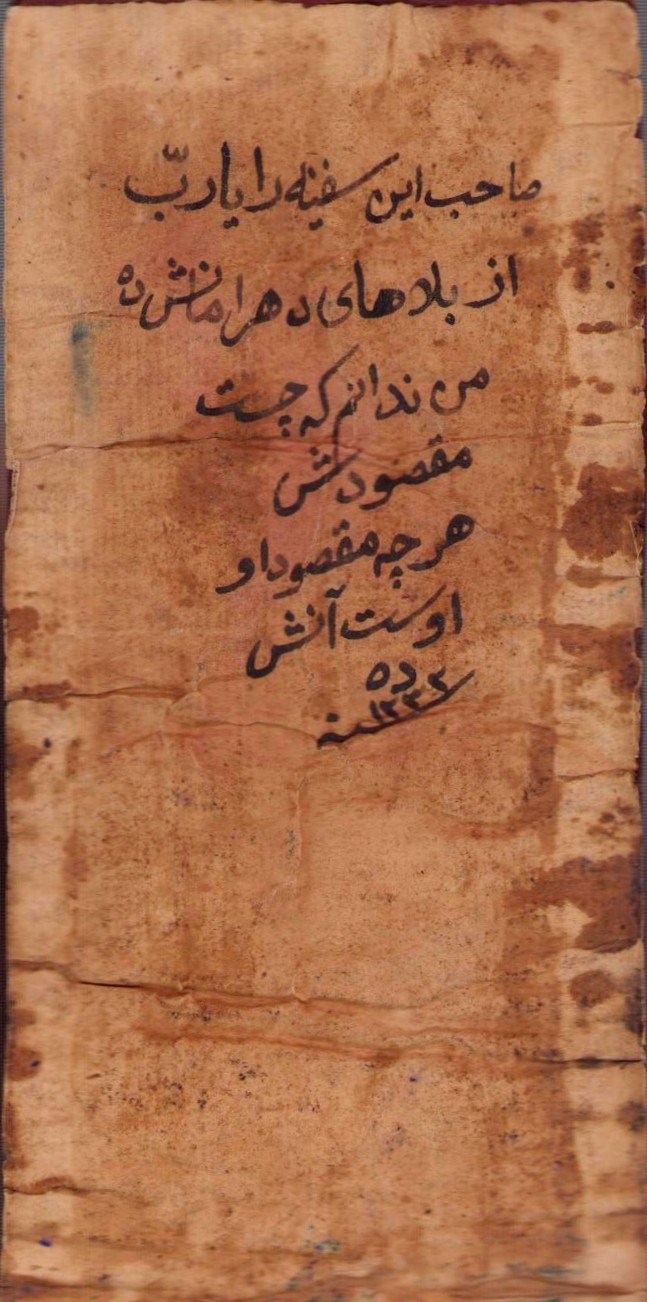 صاحب این سفینه را یا ربّ
از بلاهای دهر امانش ده
من ندانم که چیست
مقصودش
هر چه مقصود او
اوست آنش
ده
سنه ۱۳۳۳